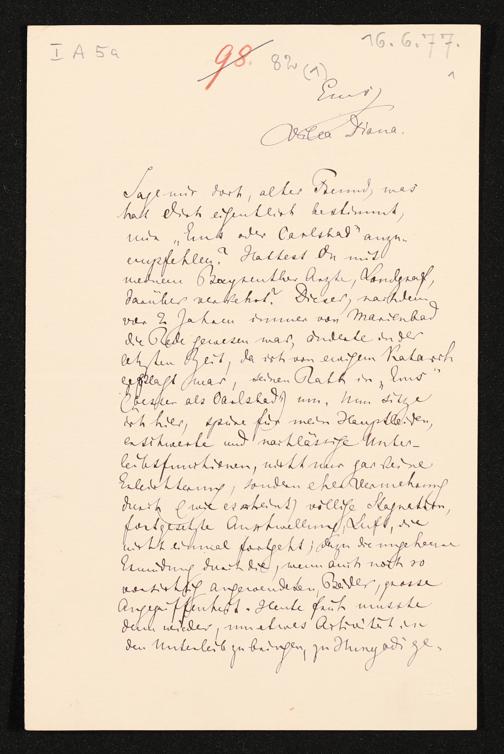 I A 5a
98.
82 (1)
16.6.77.
Ems,
Villa Diana.
Sage mir doch, alter Freund, was
hat Dich eigentlich bestimmt,
mir „Ems oder Carlsbad" anzu-
empfehlen? Hattest Du mit
meinem Bayreuther Arzte, Landgraf,
darüber verkehrt? Dieser, nachdem
vor 2 Jahren immer von Marienbad
die Rede gewesen war, änderte in der
letzten Zeit, da ich von ewigem Katarrh
geplagt war, seinen Rath in „Ems"
(besser als Carlsbad) um. Nun sitze
ich hier, spüre für mein Hauptleiden,
erschwerte und nachlässige Unter-
leibsfunctionen, nicht nur gar keine
Erleichterung, sondern eher Vermehrung
durch (wie es scheint) völlige Stagnation,
fortgesetzte Anschwellung, Luft, die
nicht einmal fortgeht; dazu die ungeheure
Ermüdung durch die, wenn auch noch so
vorsichtig angewendeten, Bäder, grosse
Angegriffenheit. Heute früh musste
denn wieder, um etwas Activität in
den Unterleib zu bringen, zu Hunyadi ge-